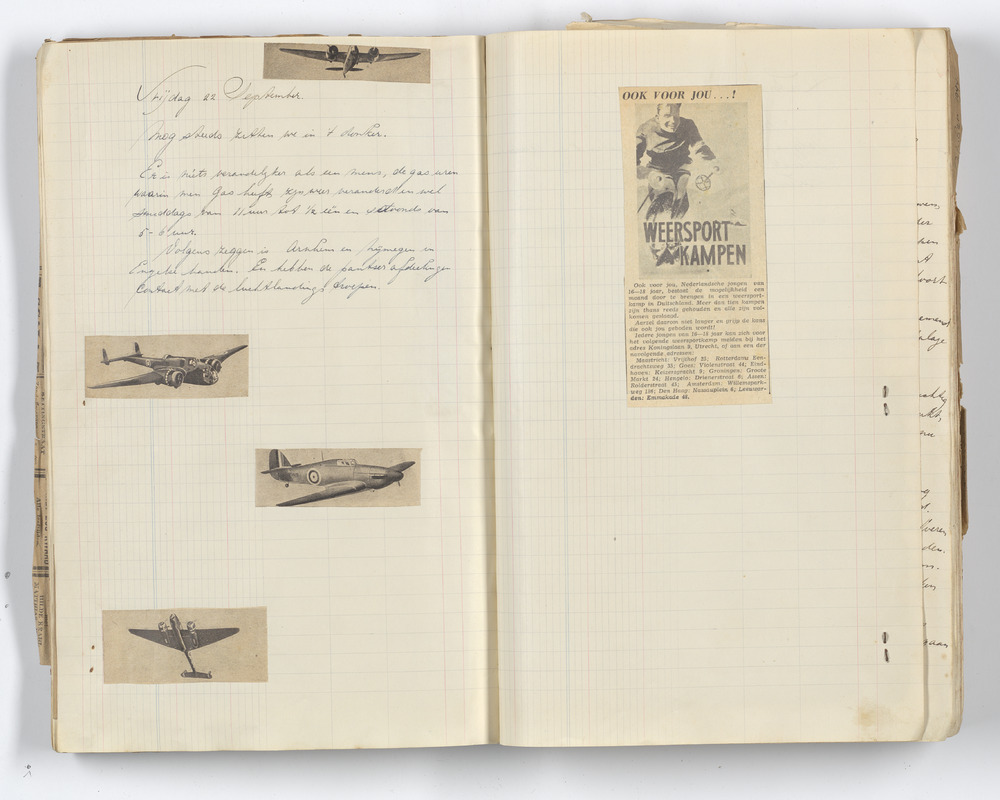 Vrijdag 22 September.
Nog steeds zitten we in 't donker.
Er is niets veranderlijker als een mens, de gas uren
waarin men Gas heeft zijn weer veranderd en wel
smiddags van 11 uur tot ½ één en savonds van
5 - 6 uur.
Volgens zeggen is Arnhem en Nijmegen in
Engelse handen. En hebben de pantser afdeelingen
Contact met de luchtlandings troepen.
OOK VOOR JOU...!
WEERSPORT
KAMPEN
Ook voor jou, Nederlandsche jongen van
16—18 jaar, bestaat de mogelijkheid een
maand door te brengen in een weersport-
kamp in Duitschland. Meer dan tien kampen
zijn thans reeds gehouden en alle zijn vol-
komen geslaagd.
Aarzel daarom niet langer en grijp de kans
die ook jou geboden wordt!
Iedere jongen van 16—18 jaar kan zich voor
het volgende weersportkamp melden bij het
adres Koningslaan 9, Utrecht, of aan een der
navolgende adressen:
Maastricht: Vrijthof 25; Rotterdam: Een-
drachtsweg 35; Goes: Vlasstraat 44; Eind-
hoven: Keizersgracht 9; Groningen: Groote
Markt 24; Hengelo: Drienerstraat 6; Assen:
Rolderstraat 43; Amsterdam: Willemspark-
weg 186; Den Haag: Nassauplein 6; Leeuwar-
den: Emmakade 48.